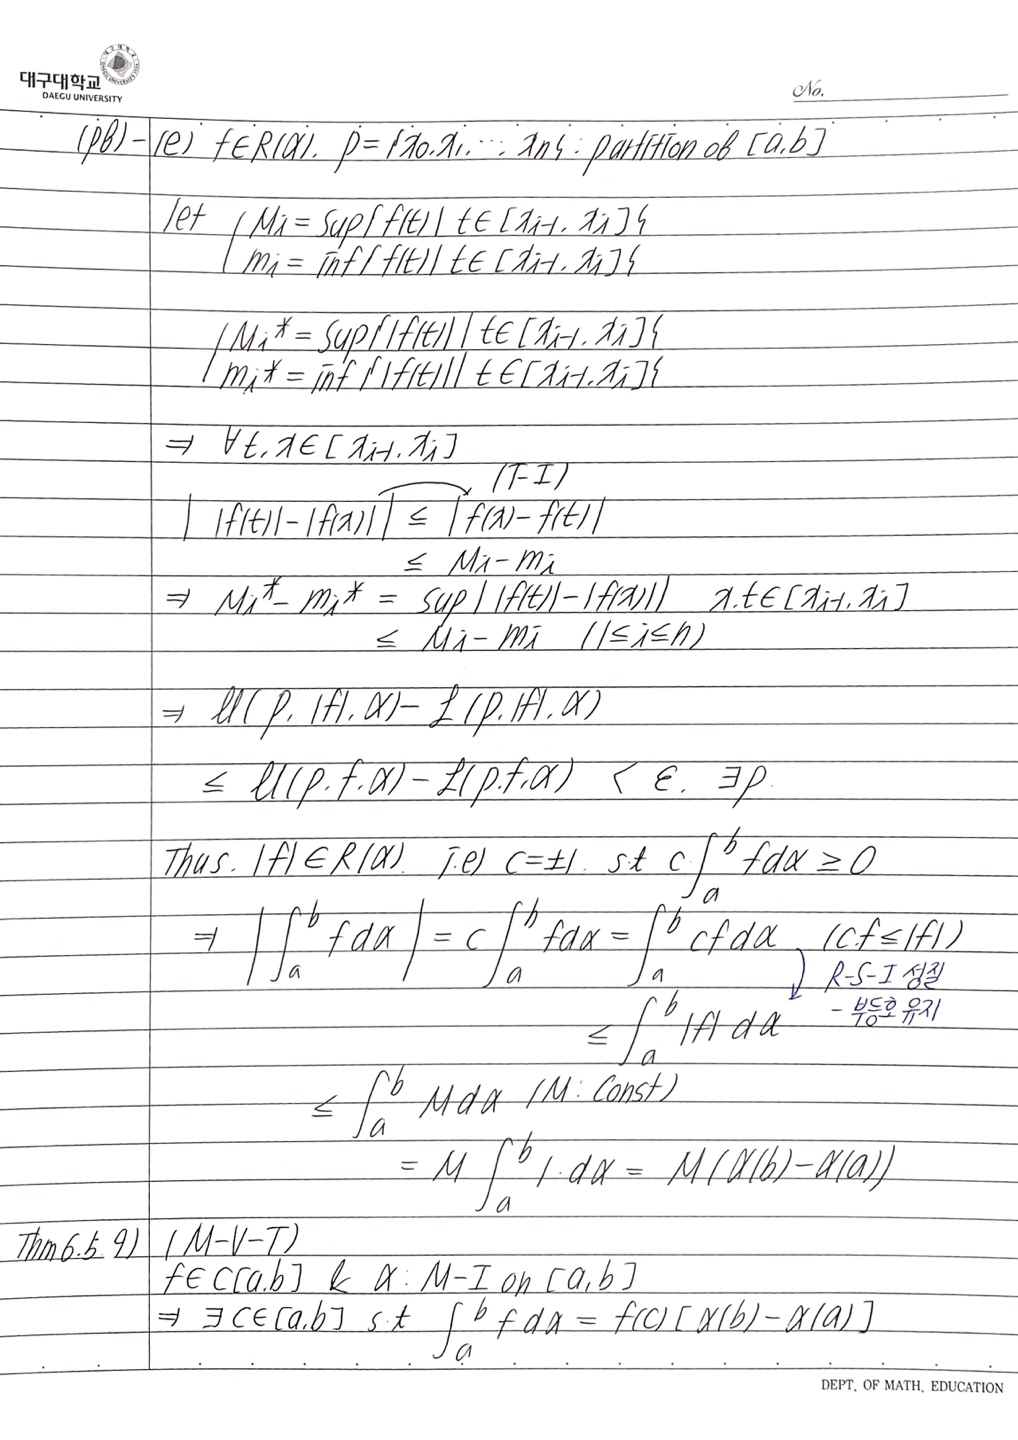 대구대학교
DAEGU UNIVERSITY
No.
(pf)-(e) f∈R(α). P={x0.x1.⋯ xn} : partition of [a,b]
let { Mi = sup{f(t)| t∈[xi-1, xi]}
mi = inf{f(t)| t∈[xi-1, xi]}
{ Mi* = sup{|f(t)| | t∈[xi-1, xi]}
mi* = inf{|f(t)| | t∈[xi-1, xi]}
⇒ ∀t, x∈[xi-1, xi]
(T-I)
| |f(t)|-|f(x)| | ≤ |f(x)-f(t)|
≤ Mi-mi
⇒ Mi*-mi* = sup| |f(t)|-|f(x)| | x.t∈[xi-1, xi]
≤ Mi-mi (1≤i≤n)
⇒ U(P, |f|, α)-L(P, |f|, α)
≤ U(P, f, α)-L(P, f, α) < ε. ∃P.
Thus. |f|∈R(α). i.e) c=±1. s.t c∫_a^b fdα ≥ 0
⇒ |∫_a^b fdα| = c∫_a^b fdα = ∫_a^b cfdα (c.f≤|f|)
R-S-I 성질
- 부등호 유지
≤ ∫_a^b |f| dα
≤ ∫_a^b Mdα (M: Const)
= M∫_a^b 1·dα = M(α(b)-α(a))
Thm 6.5.9) (M-V-T)
f∈C[a,b] & α: M-I on [a,b]
⇒ ∃c∈[a,b] s.t ∫_a^b fdα = f(c)[α(b)-α(a)]
DEPT. OF MATH. EDUCATION